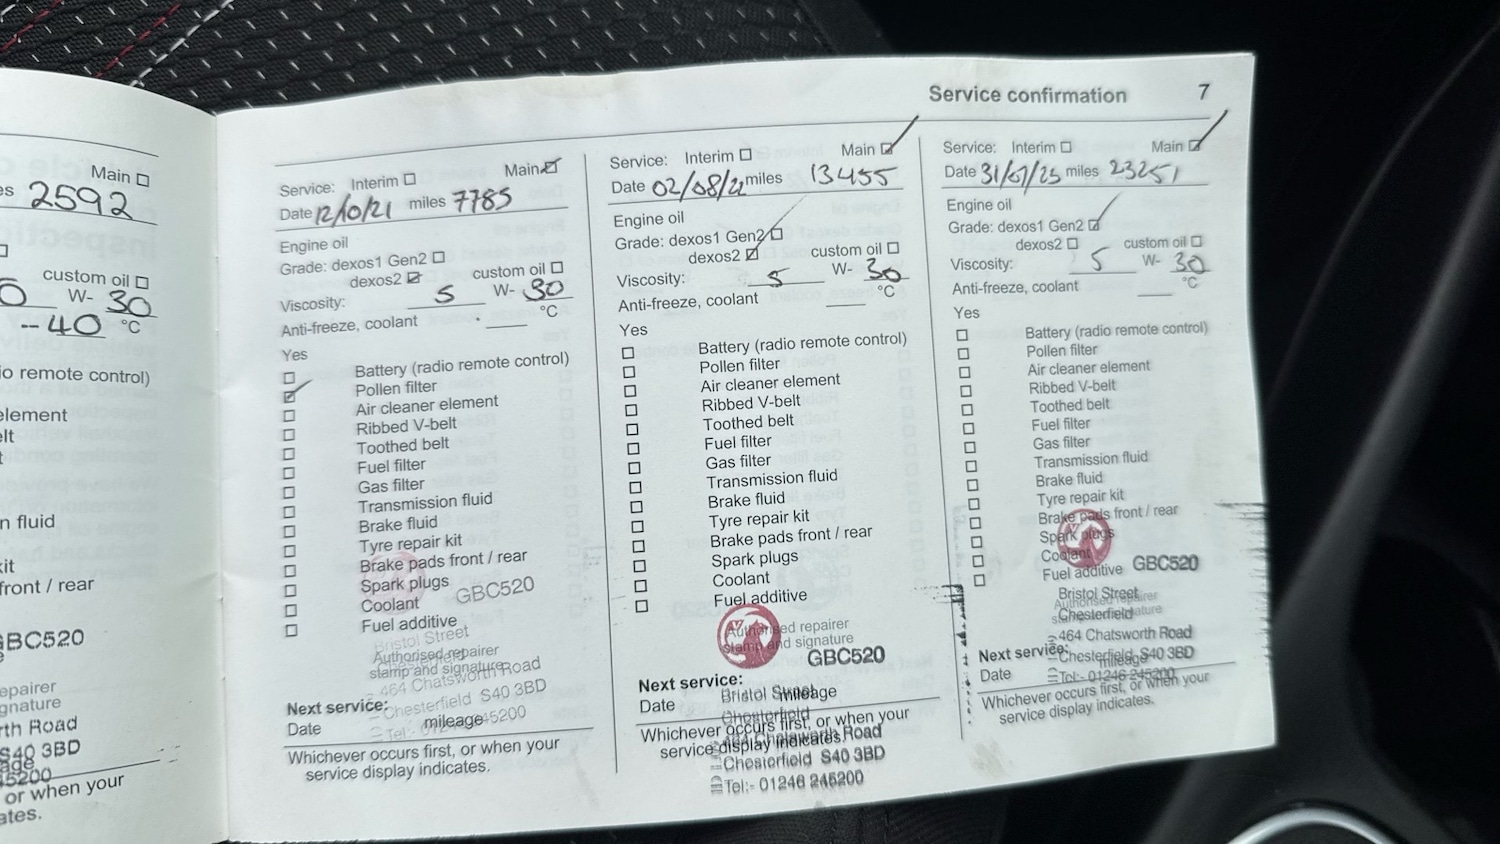 Service confirmation 7
Main
es 2592
custom oil
0 W- 30
--40 °C
io remote control)
element
elt
n fluid
kit
front / rear
GBC520
epairer
gnature
rth Road
S40 3BD
45200
or when your
ates.
Service: Interim Main
Date 12/10/21 miles 7785
Engine oil
Grade: dexos1 Gen2
dexos2 custom oil
Viscosity: 5 W- 30
Anti-freeze, coolant °C
Yes
Battery (radio remote control)
Pollen filter
Air cleaner element
Ribbed V-belt
Toothed belt
Fuel filter
Gas filter
Transmission fluid
Brake fluid
Tyre repair kit
Brake pads front / rear
Spark plugs
Coolant GBC520
Fuel additive
Bristol Street
Authorised repairer
Chesterfield
stamp and signature
464 Chatsworth Road
Next service: Chesterfield S40 3BD
Date mileage
Tel:- 01246 245200
Whichever occurs first, or when your
service display indicates.
Service: Interim Main
Date 02/08/22 miles 13455
Engine oil
Grade: dexos1 Gen2
dexos2 custom oil
Viscosity: 5 W- 30
Anti-freeze, coolant °C
Yes
Battery (radio remote control)
Pollen filter
Air cleaner element
Ribbed V-belt
Toothed belt
Fuel filter
Gas filter
Transmission fluid
Brake fluid
Tyre repair kit
Brake pads front / rear
Spark plugs
Coolant
Fuel additive
Authorised repairer
stamp and signature
GBC520
Next service:
Bristol Street
Date mileage
Chesterfield
Whichever occurs first, or when your
464 Chatsworth Road
service display indicates.
Chesterfield S40 3BD
Tel:- 01246 245200
Service: Interim Main
Date 31/07/25 miles 23251
Engine oil
Grade: dexos1 Gen2
dexos2 custom oil
Viscosity: 5 W- 30
Anti-freeze, coolant °C
Yes
Battery (radio remote control)
Pollen filter
Air cleaner element
Ribbed V-belt
Toothed belt
Fuel filter
Gas filter
Transmission fluid
Brake fluid
Tyre repair kit
Brake pads front / rear
Spark plugs
Coolant
Fuel additive GBC520
Bristol Street
Authorised repairer
Chesterfield
signature
464 Chatsworth Road
Next service: Chesterfield S40 3BD
Date mileage
Tel:- 01246 245200
Whichever occurs first, or when your
service display indicates.